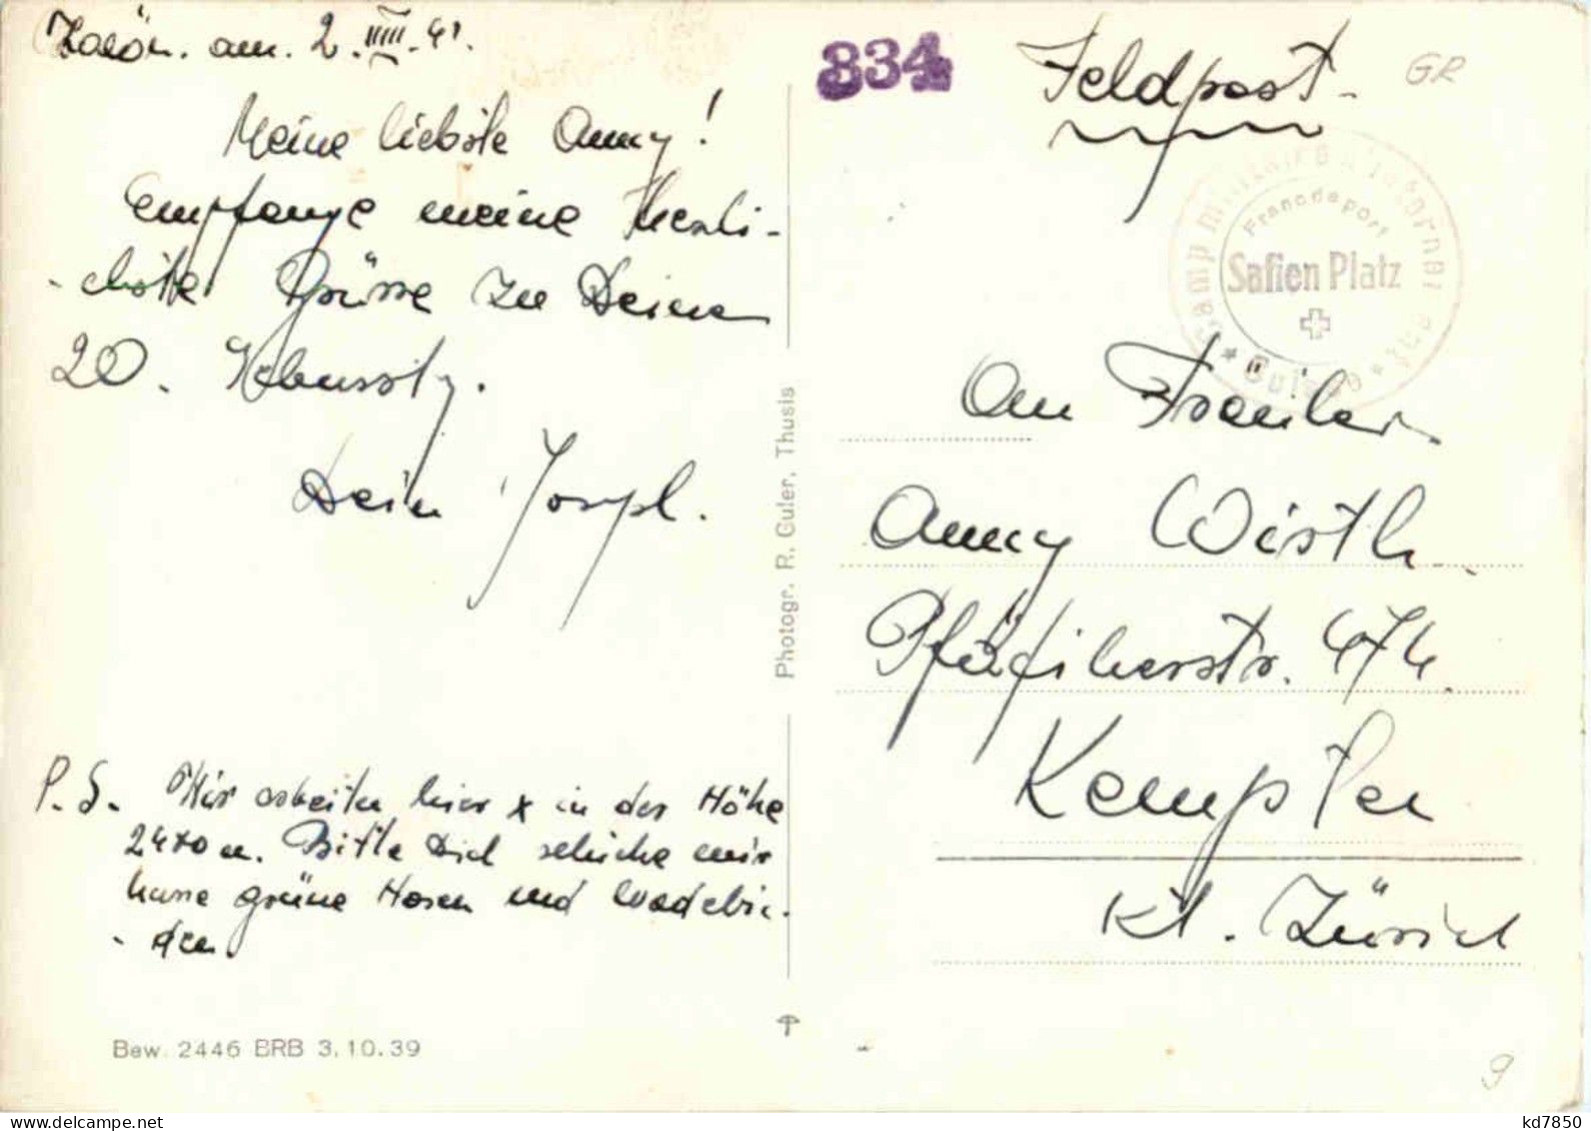 am. 2. IIIIIII. 41.
Meine liebste Anny!
Empfange meine Herzli-
-chste Grüsse zu Deinen
20.
Dein
P.S. Wir arbeiten hier x in der Höhe
2470 m. Bitte Dich schicke mir
kurze grüne Hosen und Wadebin-
-den.
Bew. 2446 BRB 3.10.39
Photogr. R. Guler, Thusis
834
Feldpost-
GR
Camp militaire d'internement
Francodeport
Safien Platz
* Suisse *
An Fräulein
Anny Wirth.
Pfäffikerstr. 474.
Kempten
Kt. Zürich
9
kd7850